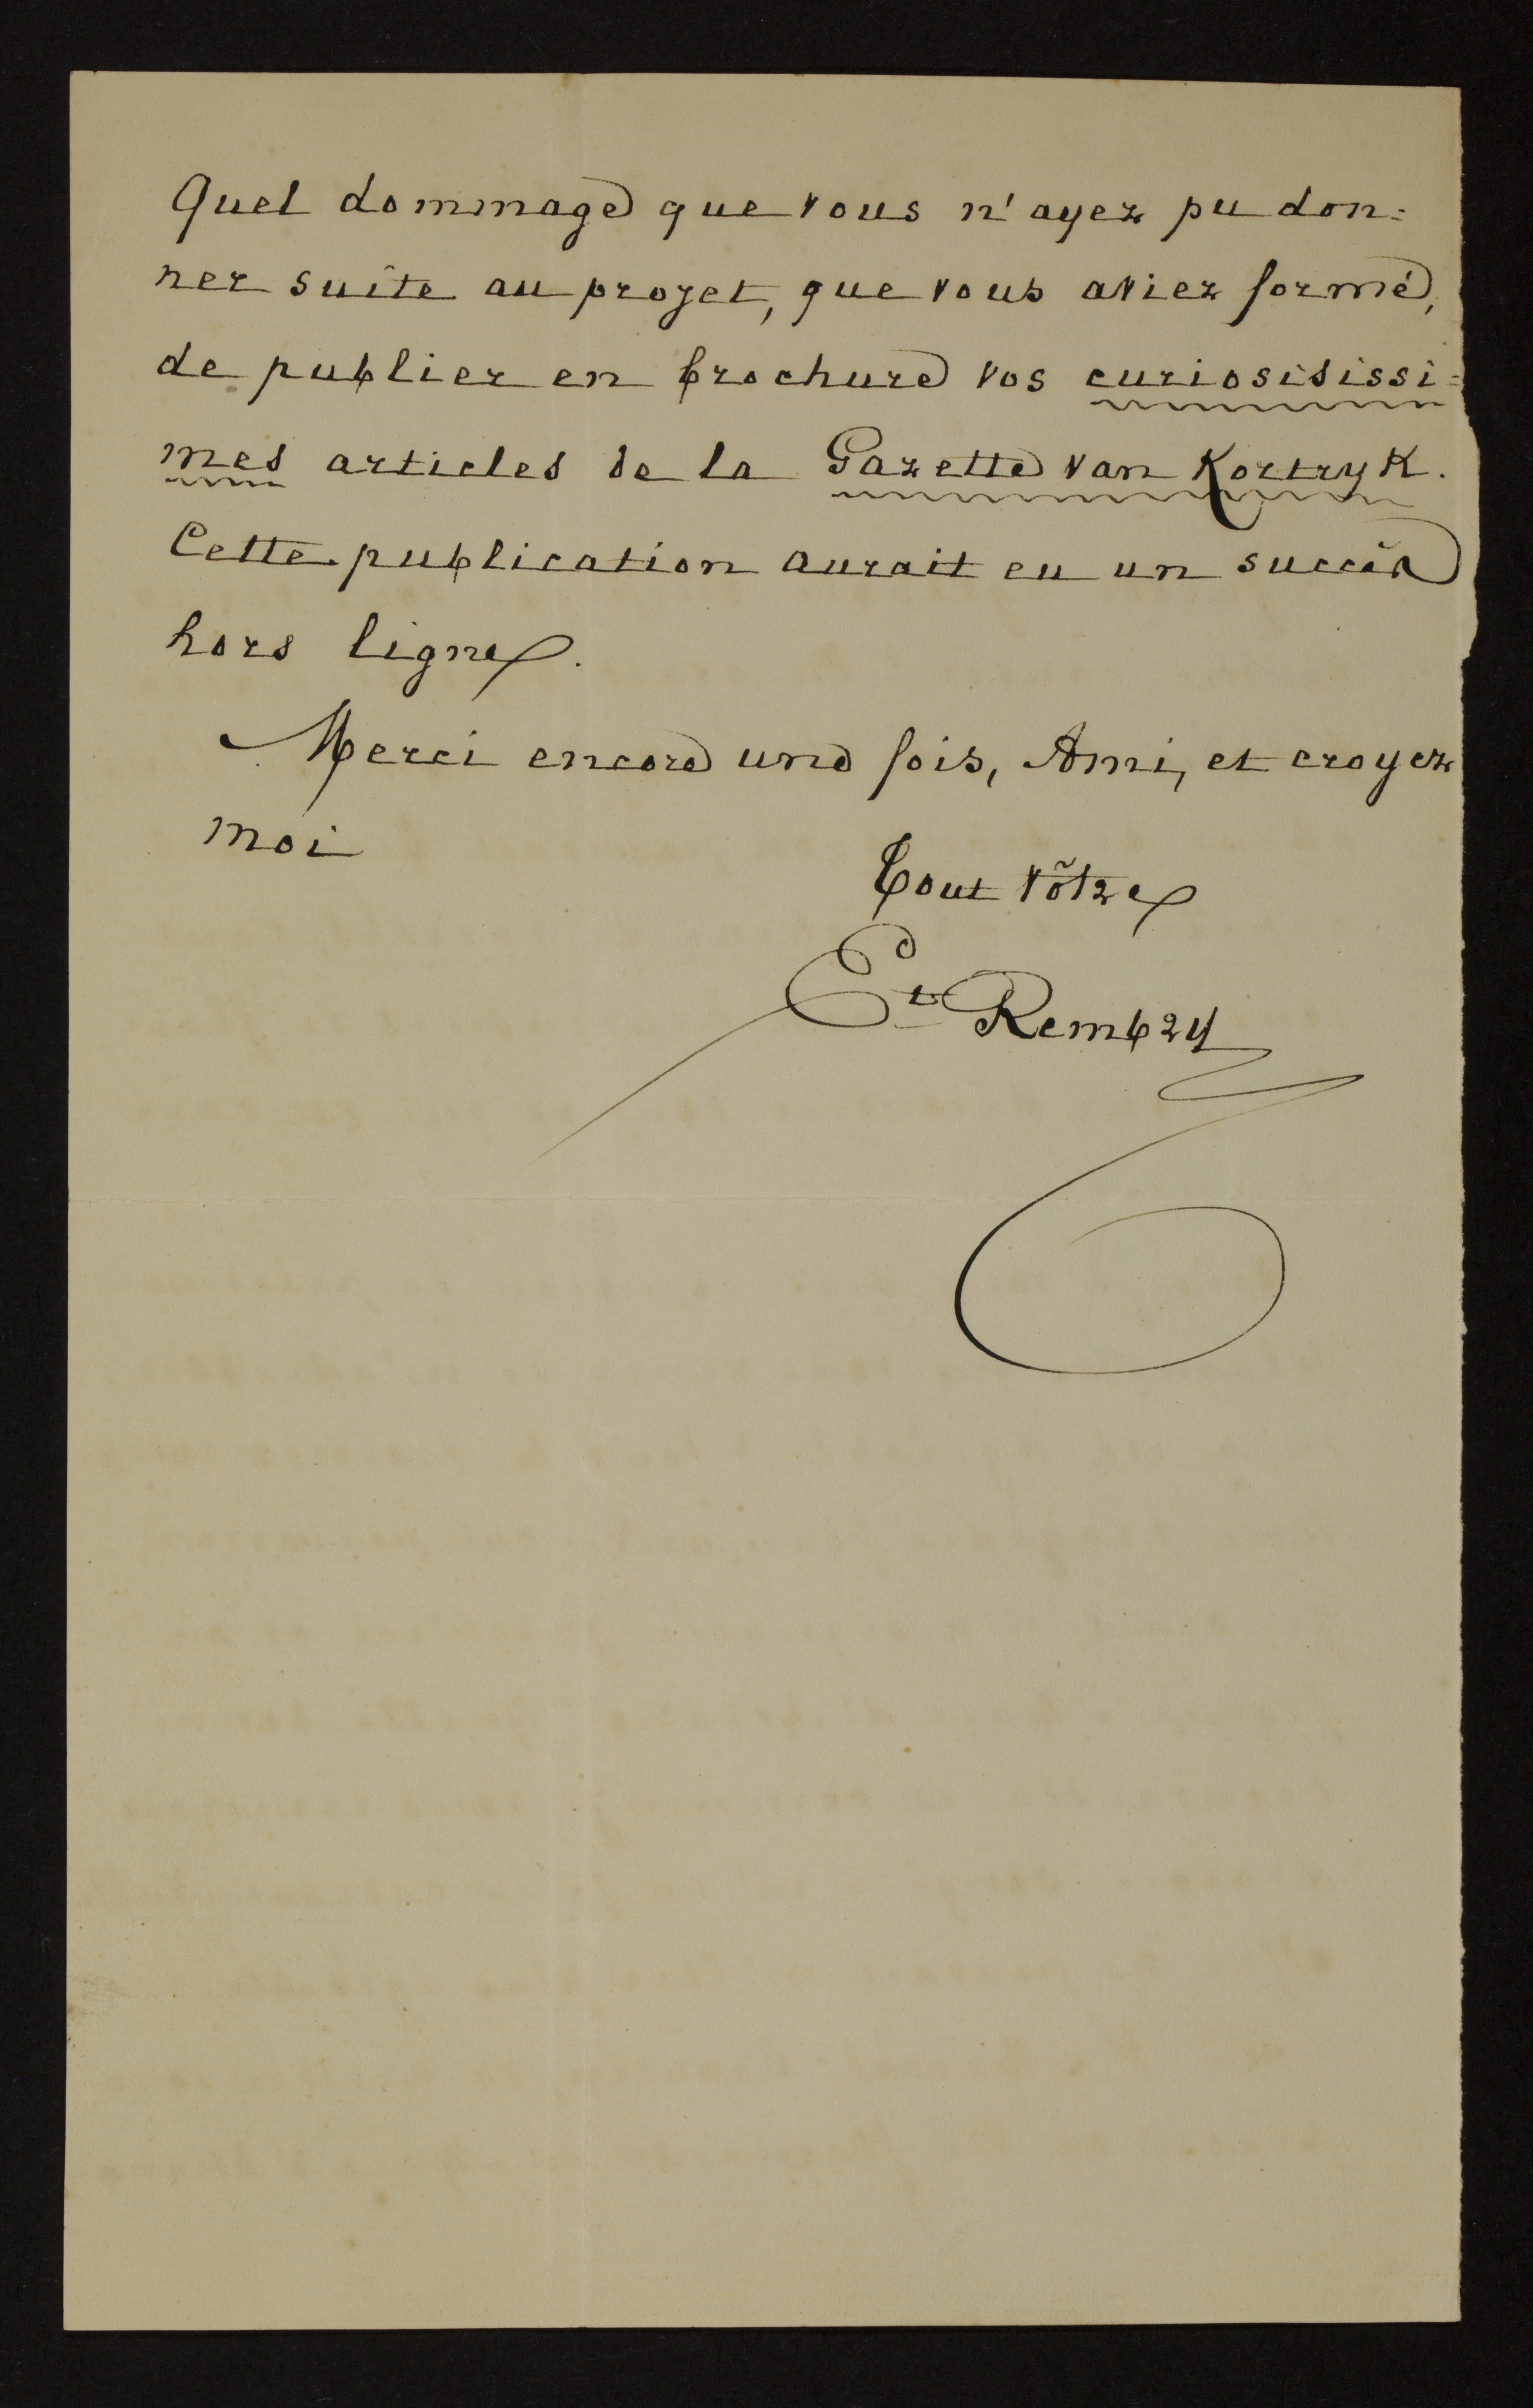 Quel dommage que vous n'ayez pu don=
ner suite au projet, que vous aviez formé,
de publier en brochure vos curiosisissi=
mes articles de la Gazette van Kortryk.
Cette publication aurait eu un succès
hors ligne.
Merci encore une fois, Ami, et croyez
moi
Tout vôtre
Et Rembry